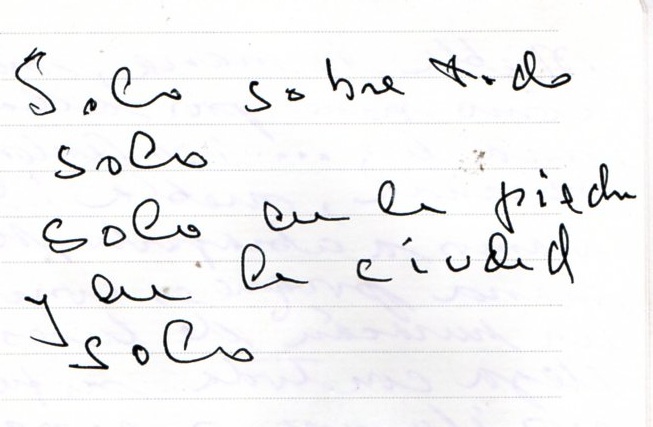 Solo sobre todo
solo
solo en la piedra
y en la ciudad
solo